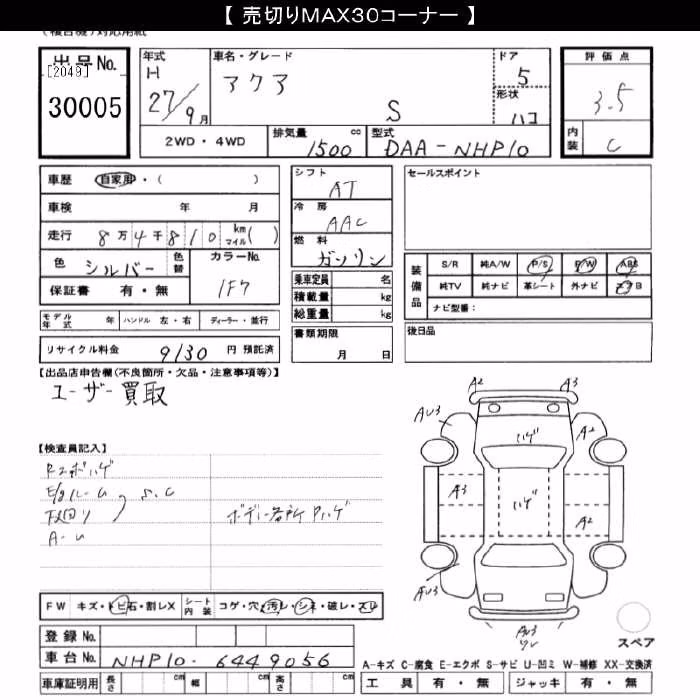 【 売切りMAX30コーナー 】
出品No.
[2049]
30005
年式
H
27/9月
車名・グレード
アクア
S
ドア
5
形状
ハコ
評価点
3.5
内装
C
2WD・4WD
排気量
1500 cc
型式
DAA-NHP10
車歴 自家用・( )
車検 年 月
走行 8万4千810 km マイル( )
色 シルバー 色替
カラーNo. 1F7
保証書 有・無
シフト
AT
冷房
AAC
燃料
ガソリン
乗車定員 名
積載量 kg
総重量 kg
セールスポイント
装備品
S/R 純A/W P/S P/W ABS
純TV 純ナビ 革シート 外ナビ エアB
ナビ型番:
モデル年式 年 ハンドル 左・右 ディーラー・並行
リサイクル料金 9130 円 預託済
書類期限
月 日
後日品
【出品店申告欄(不良箇所・欠品・注意事項等)】
ユーザー買取
A2 A3
AU3 A2
ハゲ
A3 ハゲ A2
AU3 AU3
AU3
スペア
【検査員記入】
S.C
ボデー各所Pハゲ
FW キズ・トビ石・割レX シート内装 コゲ・穴・汚レ・シミ・破レ・スレ
登録No.
車台No. NHP10-6449056
車庫証明用 長さ cm 幅 cm 高さ cm
A-キズ C-腐食 E-エクボ S-サビ U-凹ミ W-補修 XX-交換済
工具 有・無 ジャッキ 有・無